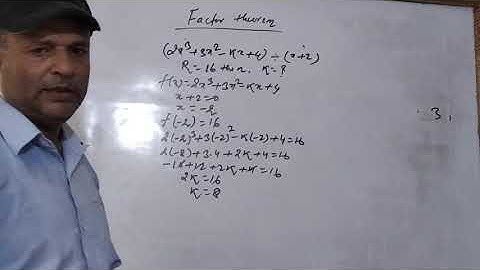 Factor theorem
(2x³+3x²-Kx+4) ÷ (x+2)
R=16 then, K=?
f(x)=2x³+3x²-Kx+4
x+2=0
x=-2
f(-2)=16
2(-2)³+3(-2)²-K(-2)+4=16
2(-8)+3.4+2K+4=16
-16+12+2K+4=16
2K=16
K=8
3.